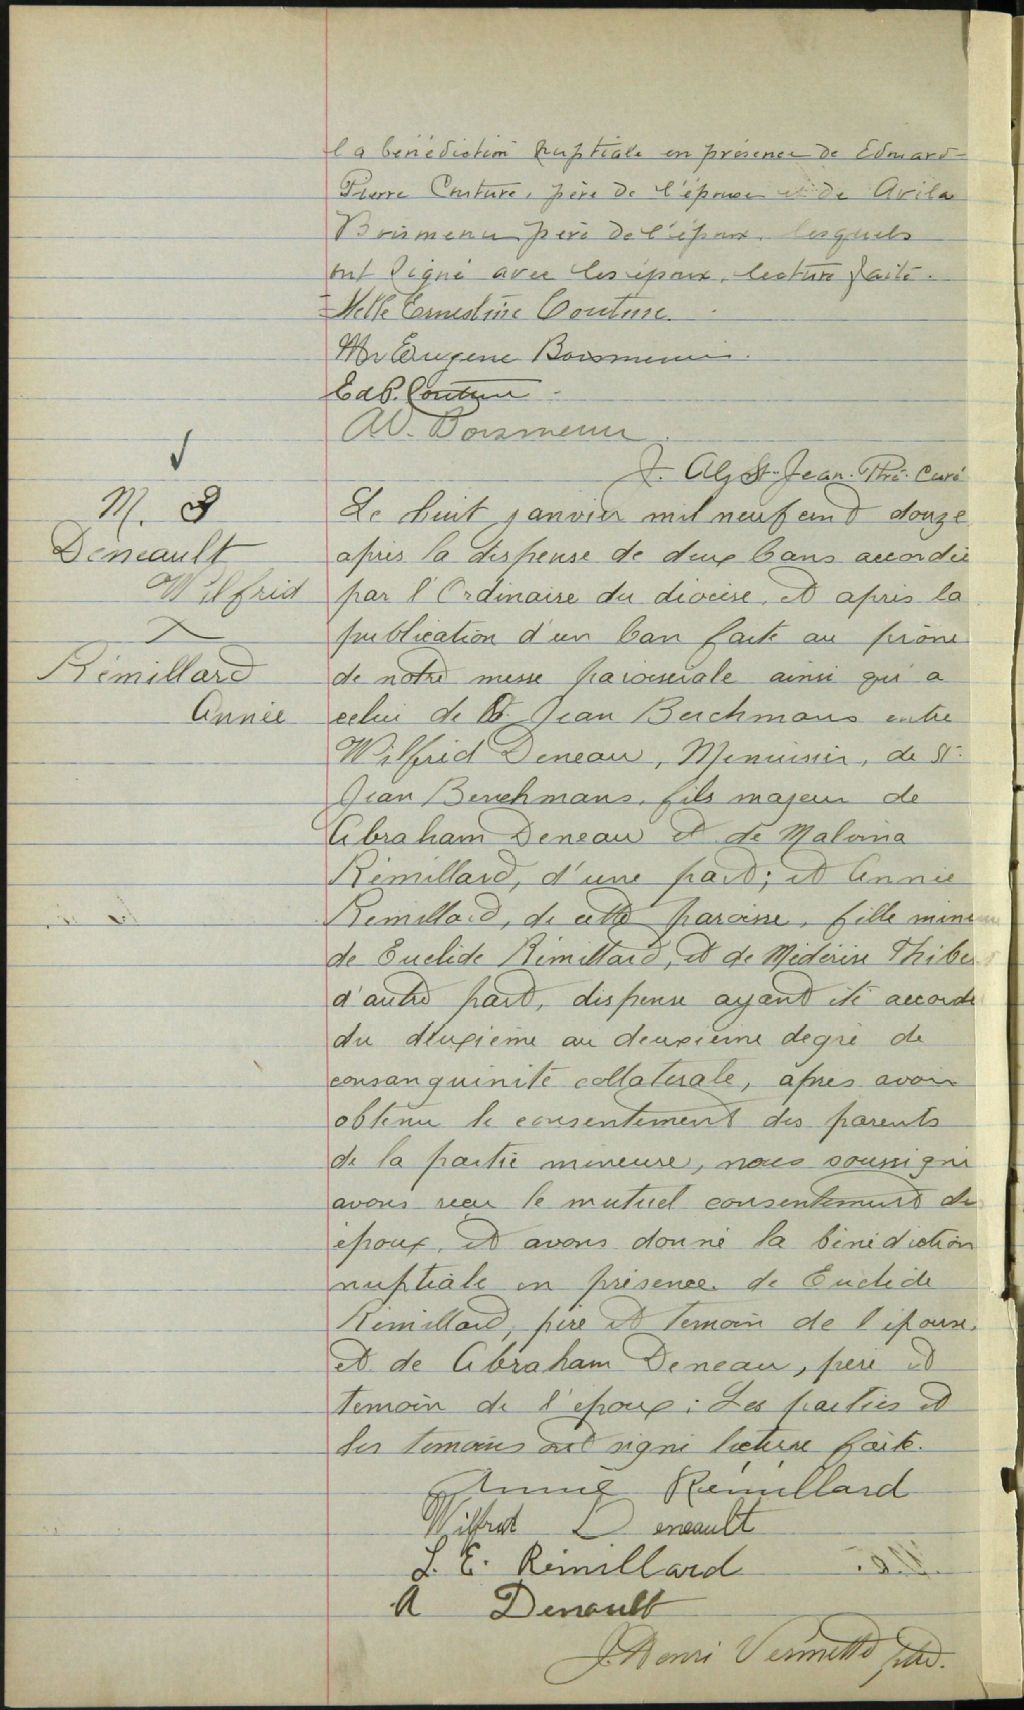 la bénédiction nuptiale en présence de Edouard-
Pierre Couture, père de l'épouse et de Avila
Boismenu père de l'époux, lesquels
ont signé avec les époux, lecture faite.
Melle Ernestine Couture.
Mr Eugene Boismenu.
Ed P. Couture
AV. Boismenu.
J. Alp St-Jean. Ptre. Curé
M. 3
Deneault
Wilfrid
Rémillard
Annie
Le huit janvier mil neuf cent douze
après la dispense de deux bans accordée
par l'Ordinaire du diocèse, et après la
publication d'un ban faite au prône
de notre messe paroissiale ainsi qu'a
celui de St. Jean Berchmans entre
Wilfrid Deneau, Menuisier, de St.
Jean Berchmans, fils majeur de
Abraham Deneau et de Malvina
Rémillard, d'une part; et Annie
Rémillard, de cette paroisse, fille mineure
de Euclide Rémillard, et de Médérise
d'autre part, dispense ayant été accordé
du deuxième au deuxième degré de
consanguinité collatérale, après avoir
obtenu le consentement des parents
de la partie mineure, nous soussigné
avons reçu le mutuel consentement des
époux, et avons donné la bénédiction
nuptiale en présence de Euclide
Rémillard, père et temoin de l'épouse,
et de Abraham Deneau, père et
temoin de l'époux; Les parties et
les temoins ont signé lecture faite.
Annie Rémillard
Wilfrid Deneault
L. E. Rémillard
A Denault
J. Henri Vermette ptre.